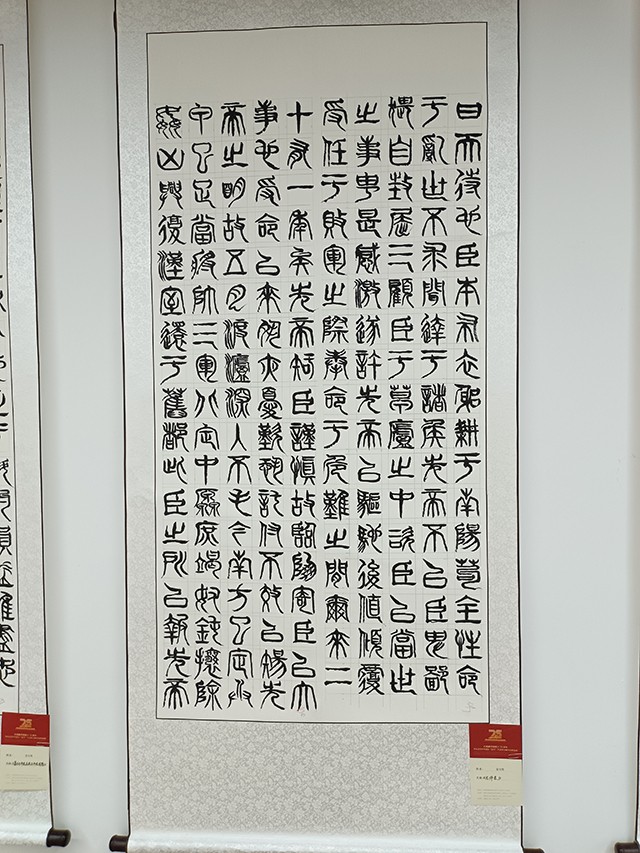 日而待也臣本布衣躬耕于南陽苟全性命
于亂世不求聞達于諸侯先帝不以臣卑鄙
猥自枉屈三顧臣于草廬之中諮臣以當世
之事由是感激遂許先帝以驅馳後值傾覆
受任于敗軍之際奉命于危難之間爾來二
十有一年矣先帝知臣謹慎故臨崩寄臣以大
事也受命以來夙夜憂歎恐託付不效以傷先
帝之明故五月渡瀘深入不毛今南方已定兵
甲已足當獎帥三軍北定中原庶竭駑鈍攘除
姦凶興復漢室還于舊都此臣之所以報先帝
25